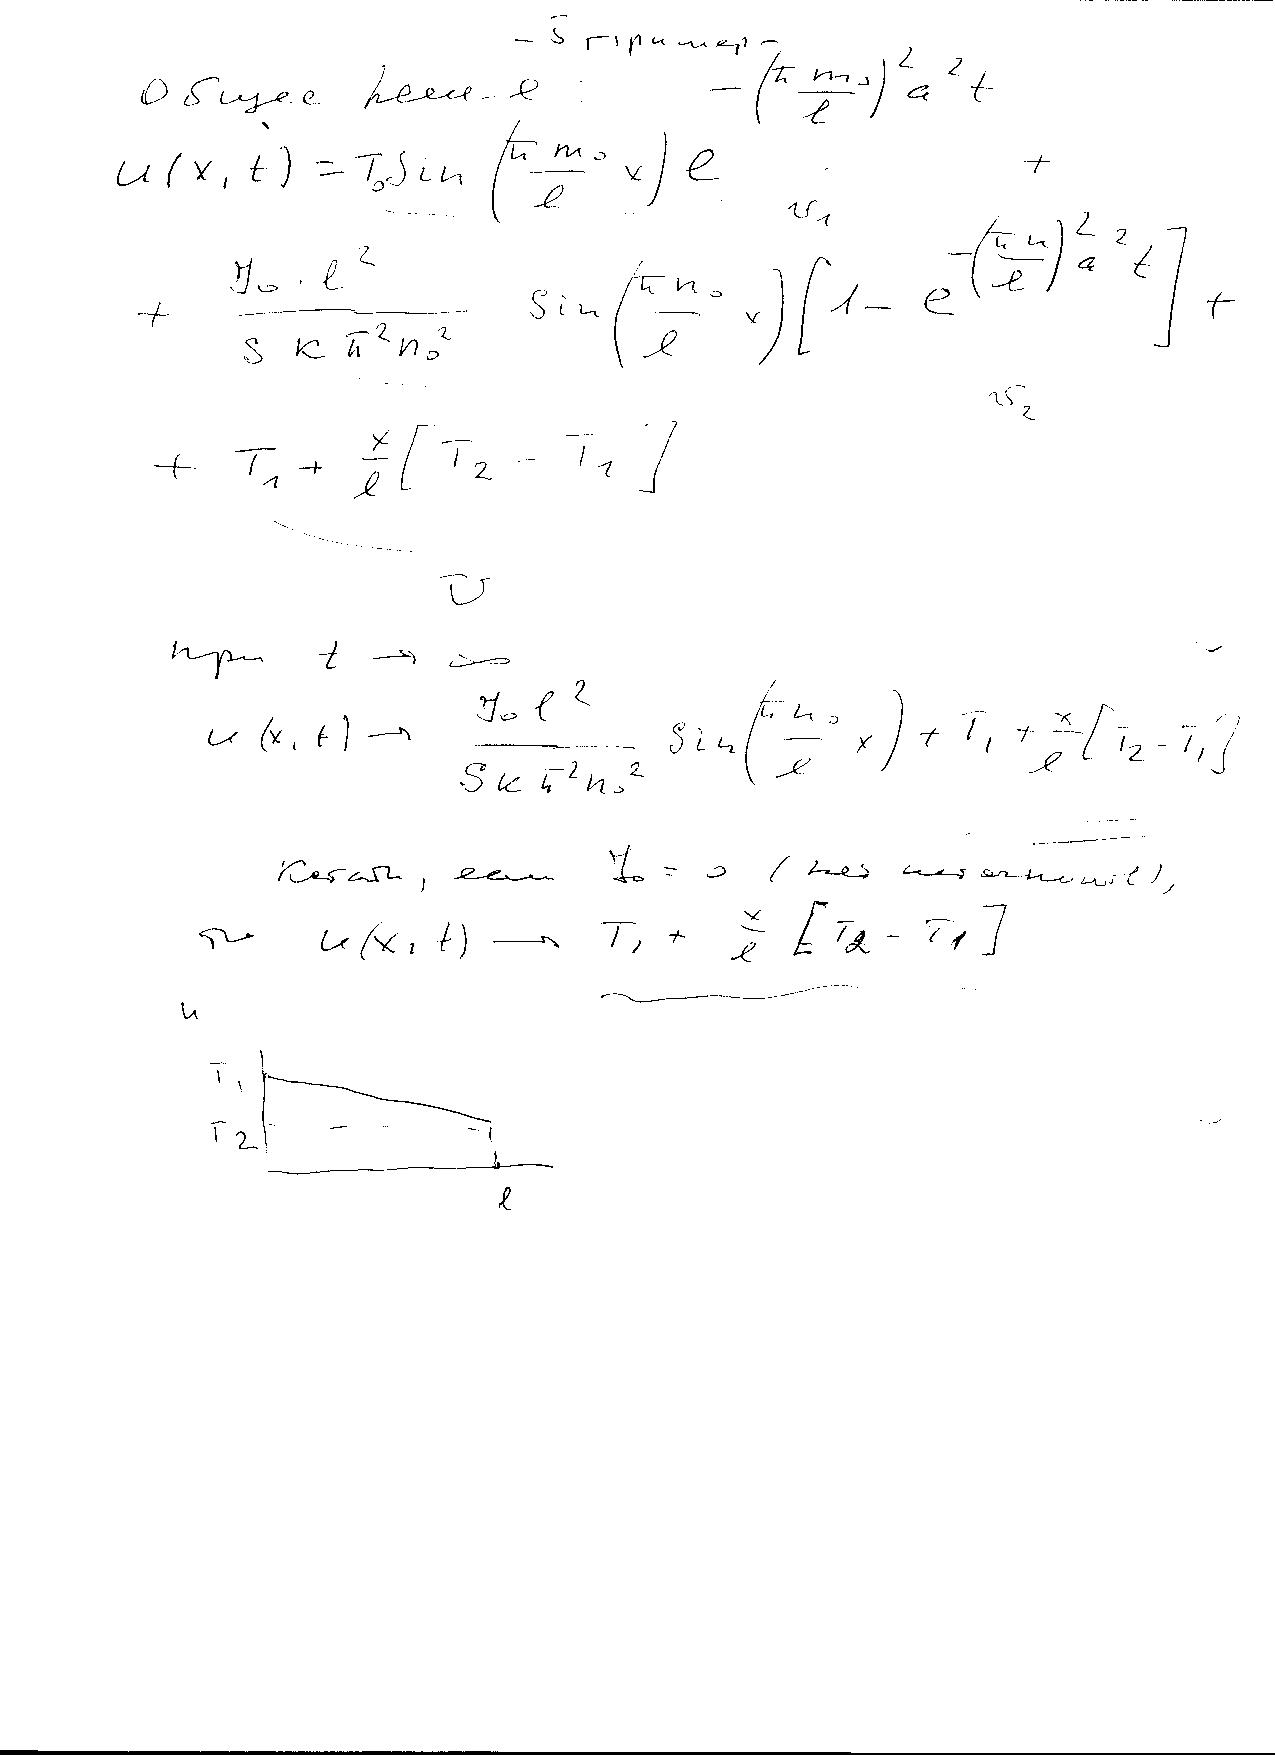 - 5 пример -
Общее решен-е :
u(x, t) = T₀ sin (π m₀/l x) e^{-(π m₀/l)² a² t} +
v₁
+ J₀ · l² / (S k π² n₀²) sin (π n₀/l x) [1 - e^{-(π n/l)² a² t}] +
v₂
+ T₁ + x/l [T₂ - T₁]
U
при t → ∞
u(x, t) → J₀ l² / (S k π² n₀²) sin (π n₀/l x) + T₁ + x/l [T₂ - T₁]
Кстати, если J₀ = 0 (нет источников),
то u(x, t) → T₁ + x/l [T₂ - T₁]
u
T₁
T₂
l